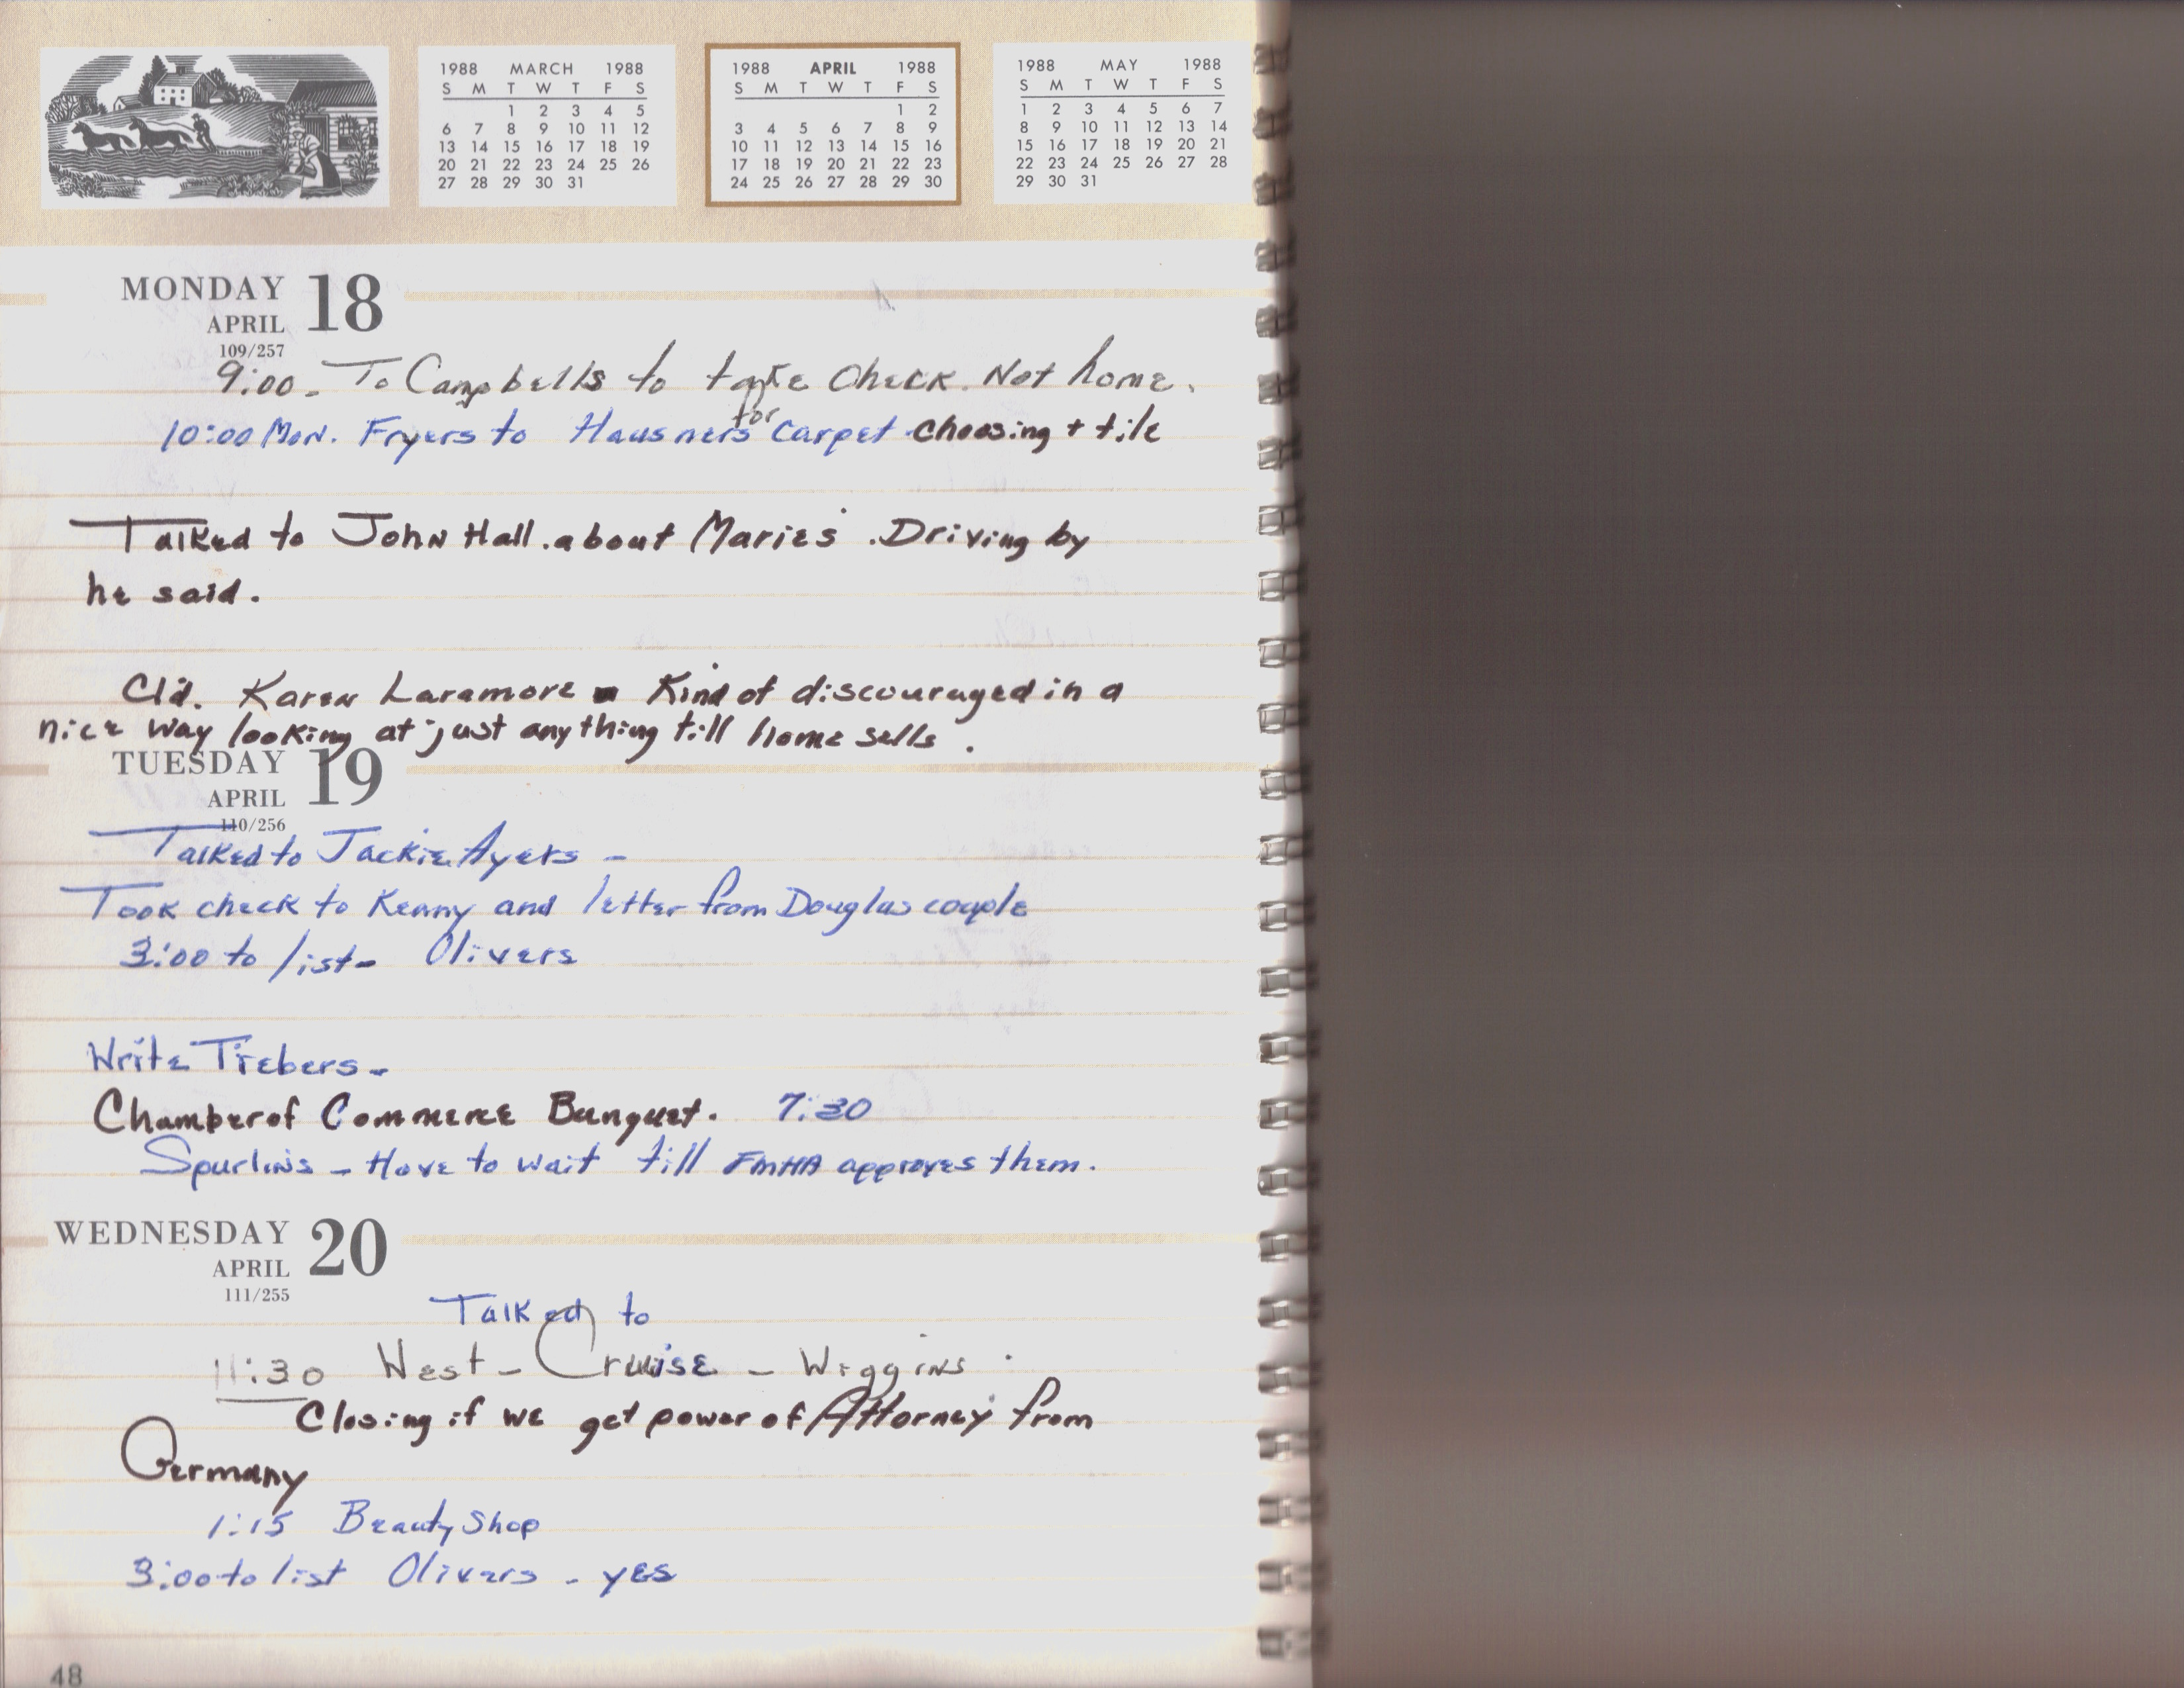 1988 MARCH 1988
S M T W T F S
1 2 3 4 5
6 7 8 9 10 11 12
13 14 15 16 17 18 19
20 21 22 23 24 25 26
27 28 29 30 31
1988 APRIL 1988
S M T W T F S
1 2
3 4 5 6 7 8 9
10 11 12 13 14 15 16
17 18 19 20 21 22 23
24 25 26 27 28 29 30
1988 MAY 1988
S M T W T F S
1 2 3 4 5 6 7
8 9 10 11 12 13 14
15 16 17 18 19 20 21
22 23 24 25 26 27 28
29 30 31
MONDAY 18
APRIL
109/257
9:00 - To Campbells to take Check. Not home.
10:00 Mon. Fryers to Hausners for Carpet choosing + tile
Talked to John Hall. about Maries. Driving by
he said.
Cld. Karen Laramore - Kind of discouraged in a
nice way looking at just anything till home sells.
TUESDAY 19
APRIL
110/256
Talked to Jackie Ayers -
Took check to Kenny and letter from Douglas couple
3:00 to list - Olivers
Write Trebers -
Chamber of Commerce Banquet. 7:30
Spurlins - Have to wait till FMHA approves them.
WEDNESDAY 20
APRIL
111/255
Talked to
11:30 West - Cruise - Wiggins
Closing if we get power of Attorney from
Germany
1:15 Beauty Shop
3:00 to list Olivers - yes
48